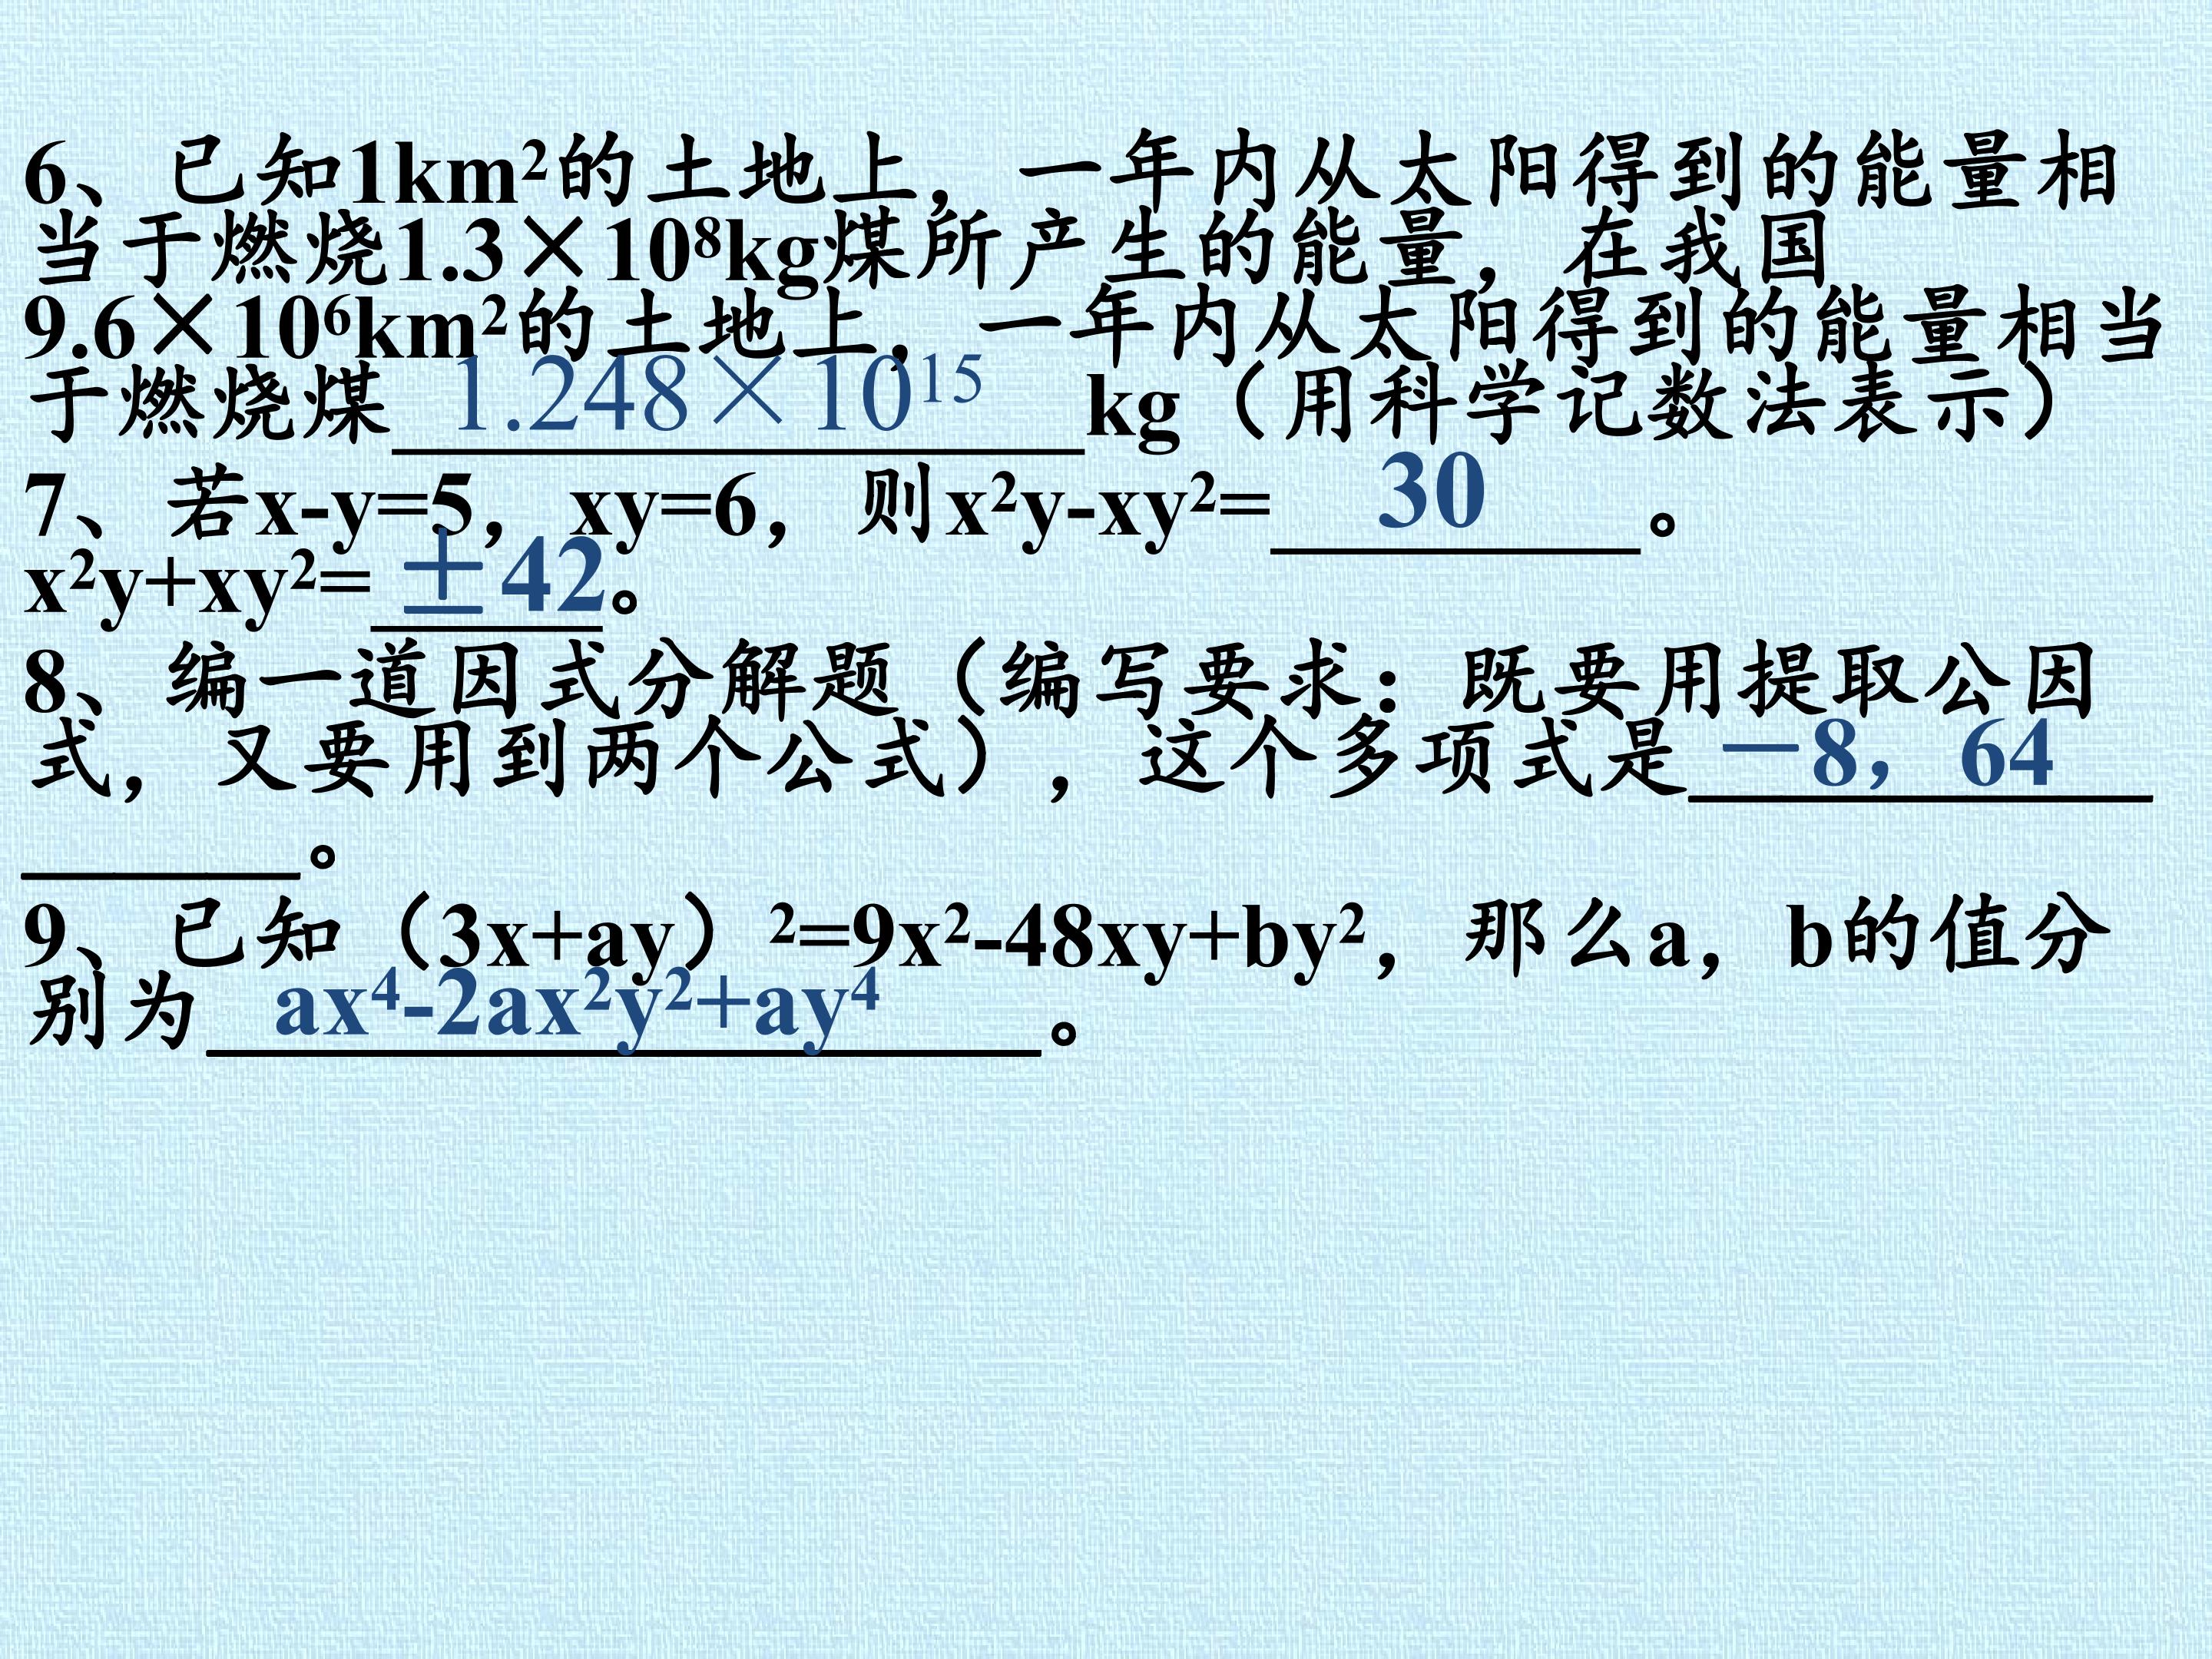 6、已知1km²的土地上，一年内从太阳得到的能量相
当于燃烧1.3×10⁸kg煤所产生的能量，在我国
9.6×10⁶km²的土地上，一年内从太阳得到的能量相当
于燃烧煤 1.248×10¹⁵ kg（用科学记数法表示）
7、若x-y=5，xy=6，则x²y-xy²= 30 。
x²y+xy²= ±42。
8、编一道因式分解题（编写要求：既要用提取公因
式，又要用到两个公式），这个多项式是 －8，64
。
9、已知（3x+ay）²=9x²-48xy+by²，那么a，b的值分
别为 ax⁴-2ax²y²+ay⁴ 。